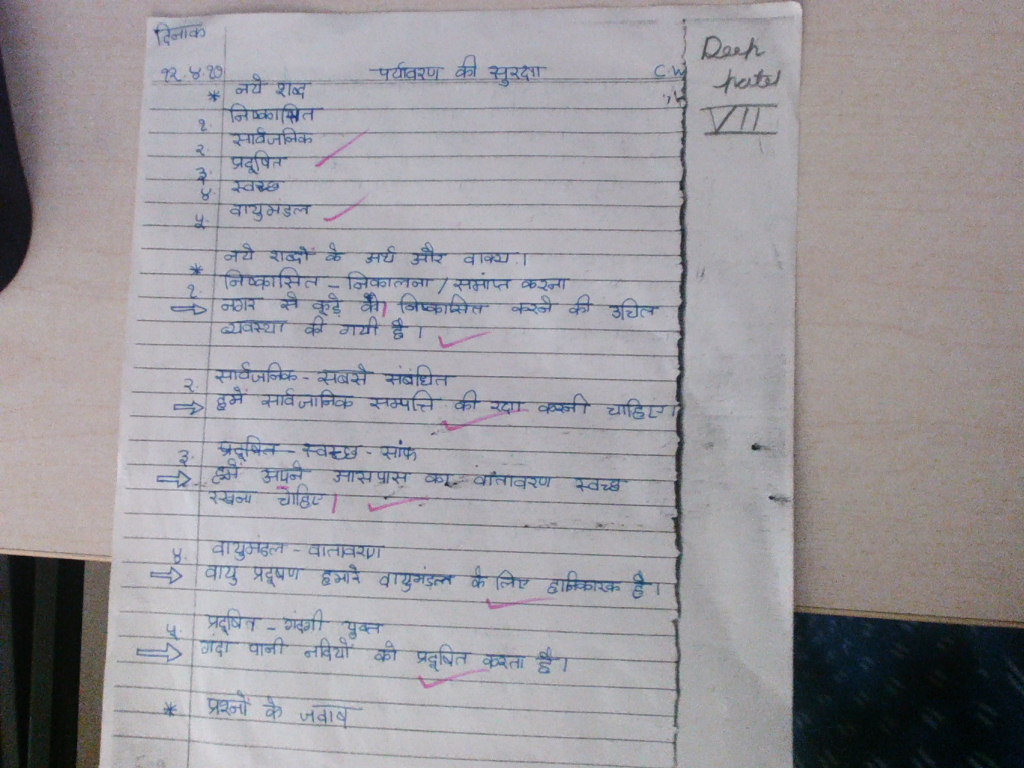 दिनांक
Deep
patel
VII
१२.४.१७ पर्यावरण की सुरक्षा C.W
* नये शब्द
१. निष्कासित
२. सार्वजनिक
३. प्रदूषित
४. स्वच्छ
५. वायुमंडल
* नये शब्दों के अर्थ और वाक्य।
१. निष्कासित - निकालना / समाप्त करना
⇒ नगर से कूड़े को निष्कासित करने की उचित
व्यवस्था की गयी है।
२. सार्वजनिक - सबसे संबंधित
⇒ हमें सार्वजानिक सम्पत्ति की रक्षा करनी चाहिए।
३. प्रदूषित - स्वच्छ - सांफ
⇒ हमें अपने आसपास का वातावरण स्वच्छ
रखना चाहिए।
४. वायुमंडल - वातावरण
⇒ वायु प्रदूषण हमारे वायुमंडल के लिए हानिकारक है।
५. प्रदूषित - गंदगी युक्त
⇒ गंदा पानी नदियों को प्रदूषित करता है।
* प्रश्नों के जवाब